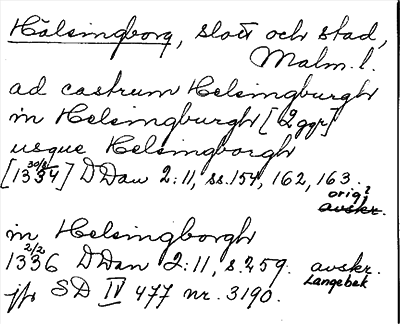 Hälsingborg, slott och stad,
Malm. l.
ad castrum Helsingburgh
in Helsingburgh [2 ggr]
usque Helsingborgh
30/8
[1334] DDan 2:11, ss. 154, 162, 163.
orig?
avskr.
in Helsingborgh
2/2
1336 DDan 2:11, s. 259. avskr.
Langebek
jfr SD IV 477 nr. 3190.